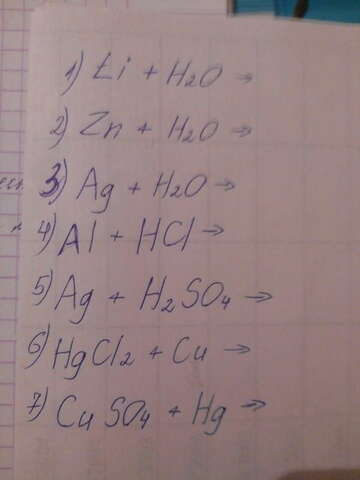 1) Li + H₂O →
2) Zn + H₂O →
3) Ag + H₂O →
4) Al + HCl →
5) Ag + H₂SO₄ →
6) HgCl₂ + Cu →
7) CuSO₄ + Hg →